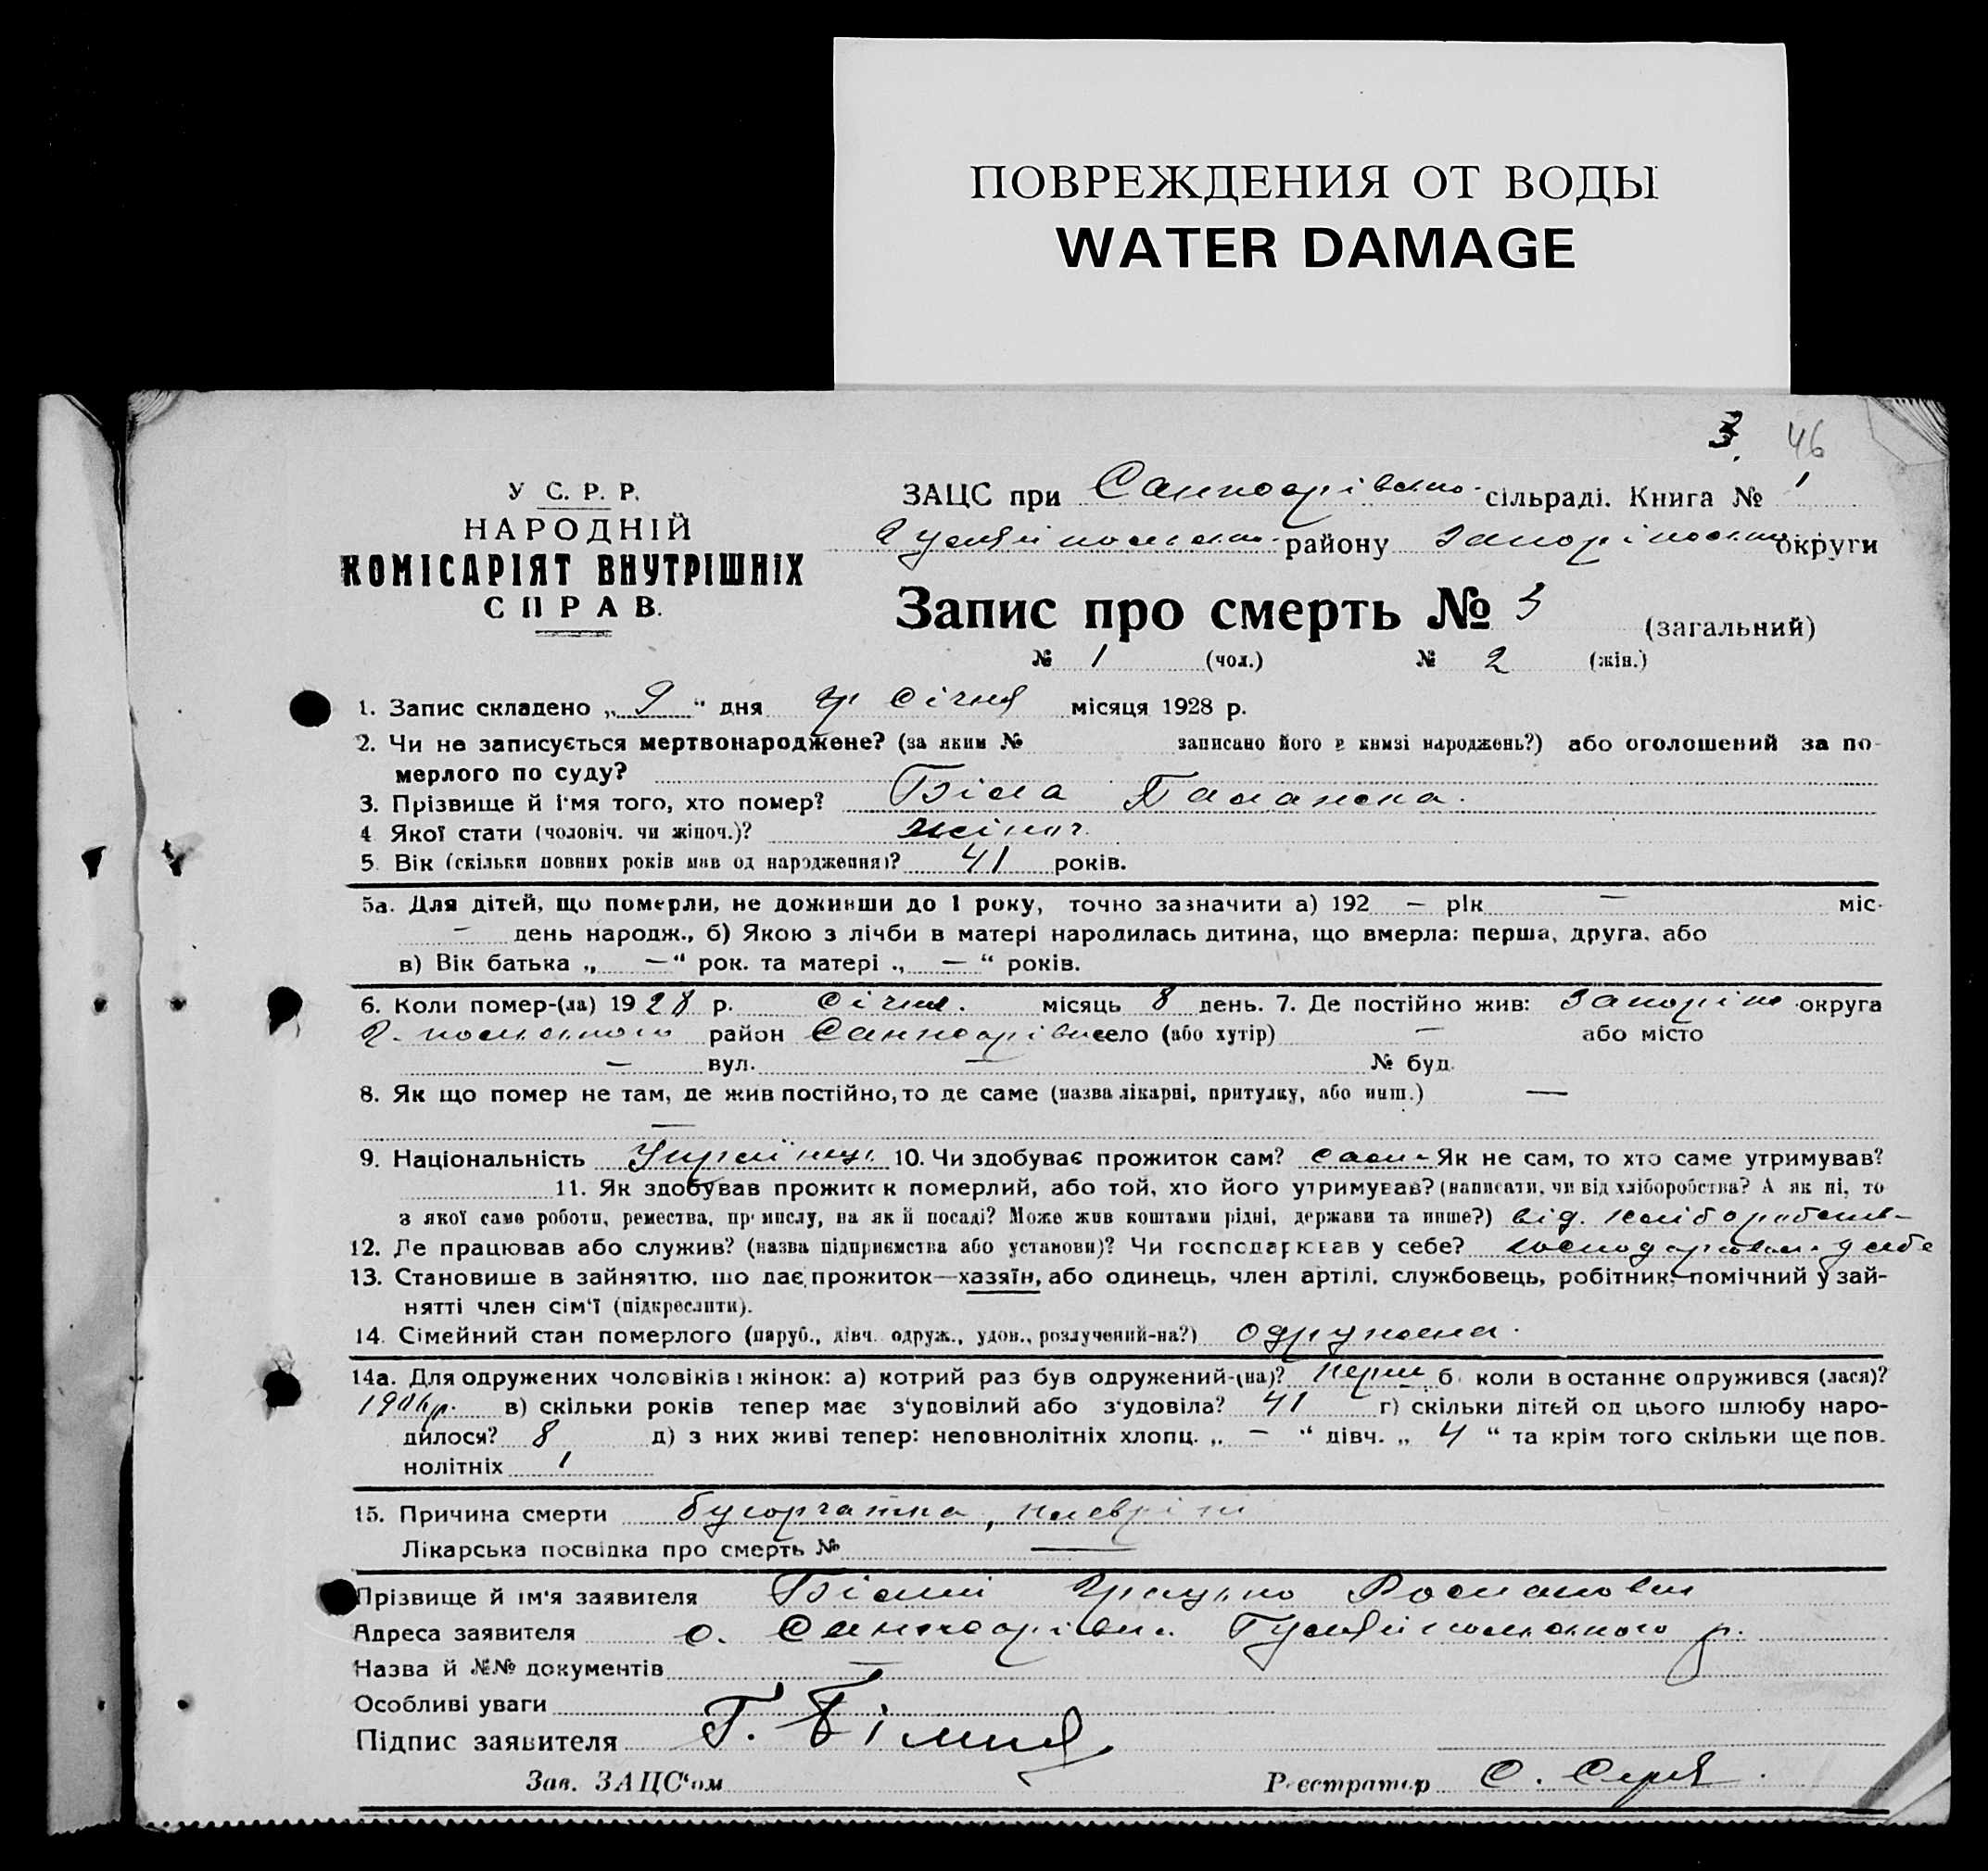 ПОВРЕЖДЕНИЯ ОТ ВОДЫ
WATER DAMAGE
3. 46
У С. Р. Р.
НАРОДНІЙ
КОМІСАРІЯТ ВНУТРІШНІХ
СПРАВ.
ЗАЦС при сільраді. Книга № 1
району округи
Запис про смерть № 3 (загальний)
№ 1 (чол.) № 2 (жін.)
1. Запис складено „ 9 “ дня Січня місяця 1928 р.
2. Чи не записується мертвонароджене? (за яким № записано його в книзі народжень?) або оголошений за по-
мерлого по суду?
3. Прізвище й і'мя того, хто помер? Біла Палажка.
4 Якої стати (чоловіч. чи жіноч.)? жіноч.
5. Вік (скільки повних років мав од народження)? 41 років.
5а. Для дітей, що померли, не доживши до 1 року, точно зазначити а) 192 — рік — міс.
— день народж., б) Якою з лічби в матері народилась дитина, що вмерла: перша, друга, або
в) Вік батька „ — “ рок. та матері „ — “ років.
6. Коли помер-(ла) 1928 р. Січня. місяць 8 день. 7. Де постійно жив: округа
район село (або хутір) — або місто
— вул. — № буд.
8. Як що помер не там, де жив постійно, то де саме (назва лікарні, притулку, або инш.) —
—
9. Національність 10. Чи здобуває прожиток сам? сама Як не сам, то хто саме утримував?
11. Як здобував прожиток померлий, або той, хто його утримував? (написати, чи від хліборобства? А як ні, то
з якої саме роботи, ремества, промислу, на якій посаді? Може жив коштами рідні, держави та инше?) від.
12. Де працював або служив? (назва підприємства або установи)? Чи господарював у себе? у себе
13. Становище в зайняттю, що дає прожиток—хазяїн, або одинець, член артілі, службовець, робітник, помічний у зай-
нятті член сім'ї (підкреслити).
14. Сімейний стан померлого (паруб., дівч. одруж., удов., розлучений-на?) одружена.
14а. Для одружених чоловіків і жінок: а) котрий раз був одружений-(на)? перш б. коли востаннє одружився (лася)?
в) скільки років тепер має з'удовілий або з'удовіла? 41 г) скільки дітей од цього шлюбу наро-
дилося? 8 д) з них живі тепер: неповнолітніх хлопц. „ — “ дівч. „ 4 “ та крім того скільки ще пов.
нолітніх 1
15. Причина смерти бугорчатка, плеврит
Лікарська посвідка про смерть № —
Прізвище й ім'я заявителя Білий Грицько Романович
Адреса заявителя с. р.
Назва й №№ документів —
Особливі уваги
Підпис заявителя Г. Білий
Зав. ЗАЦС'ом Реєстратор С.